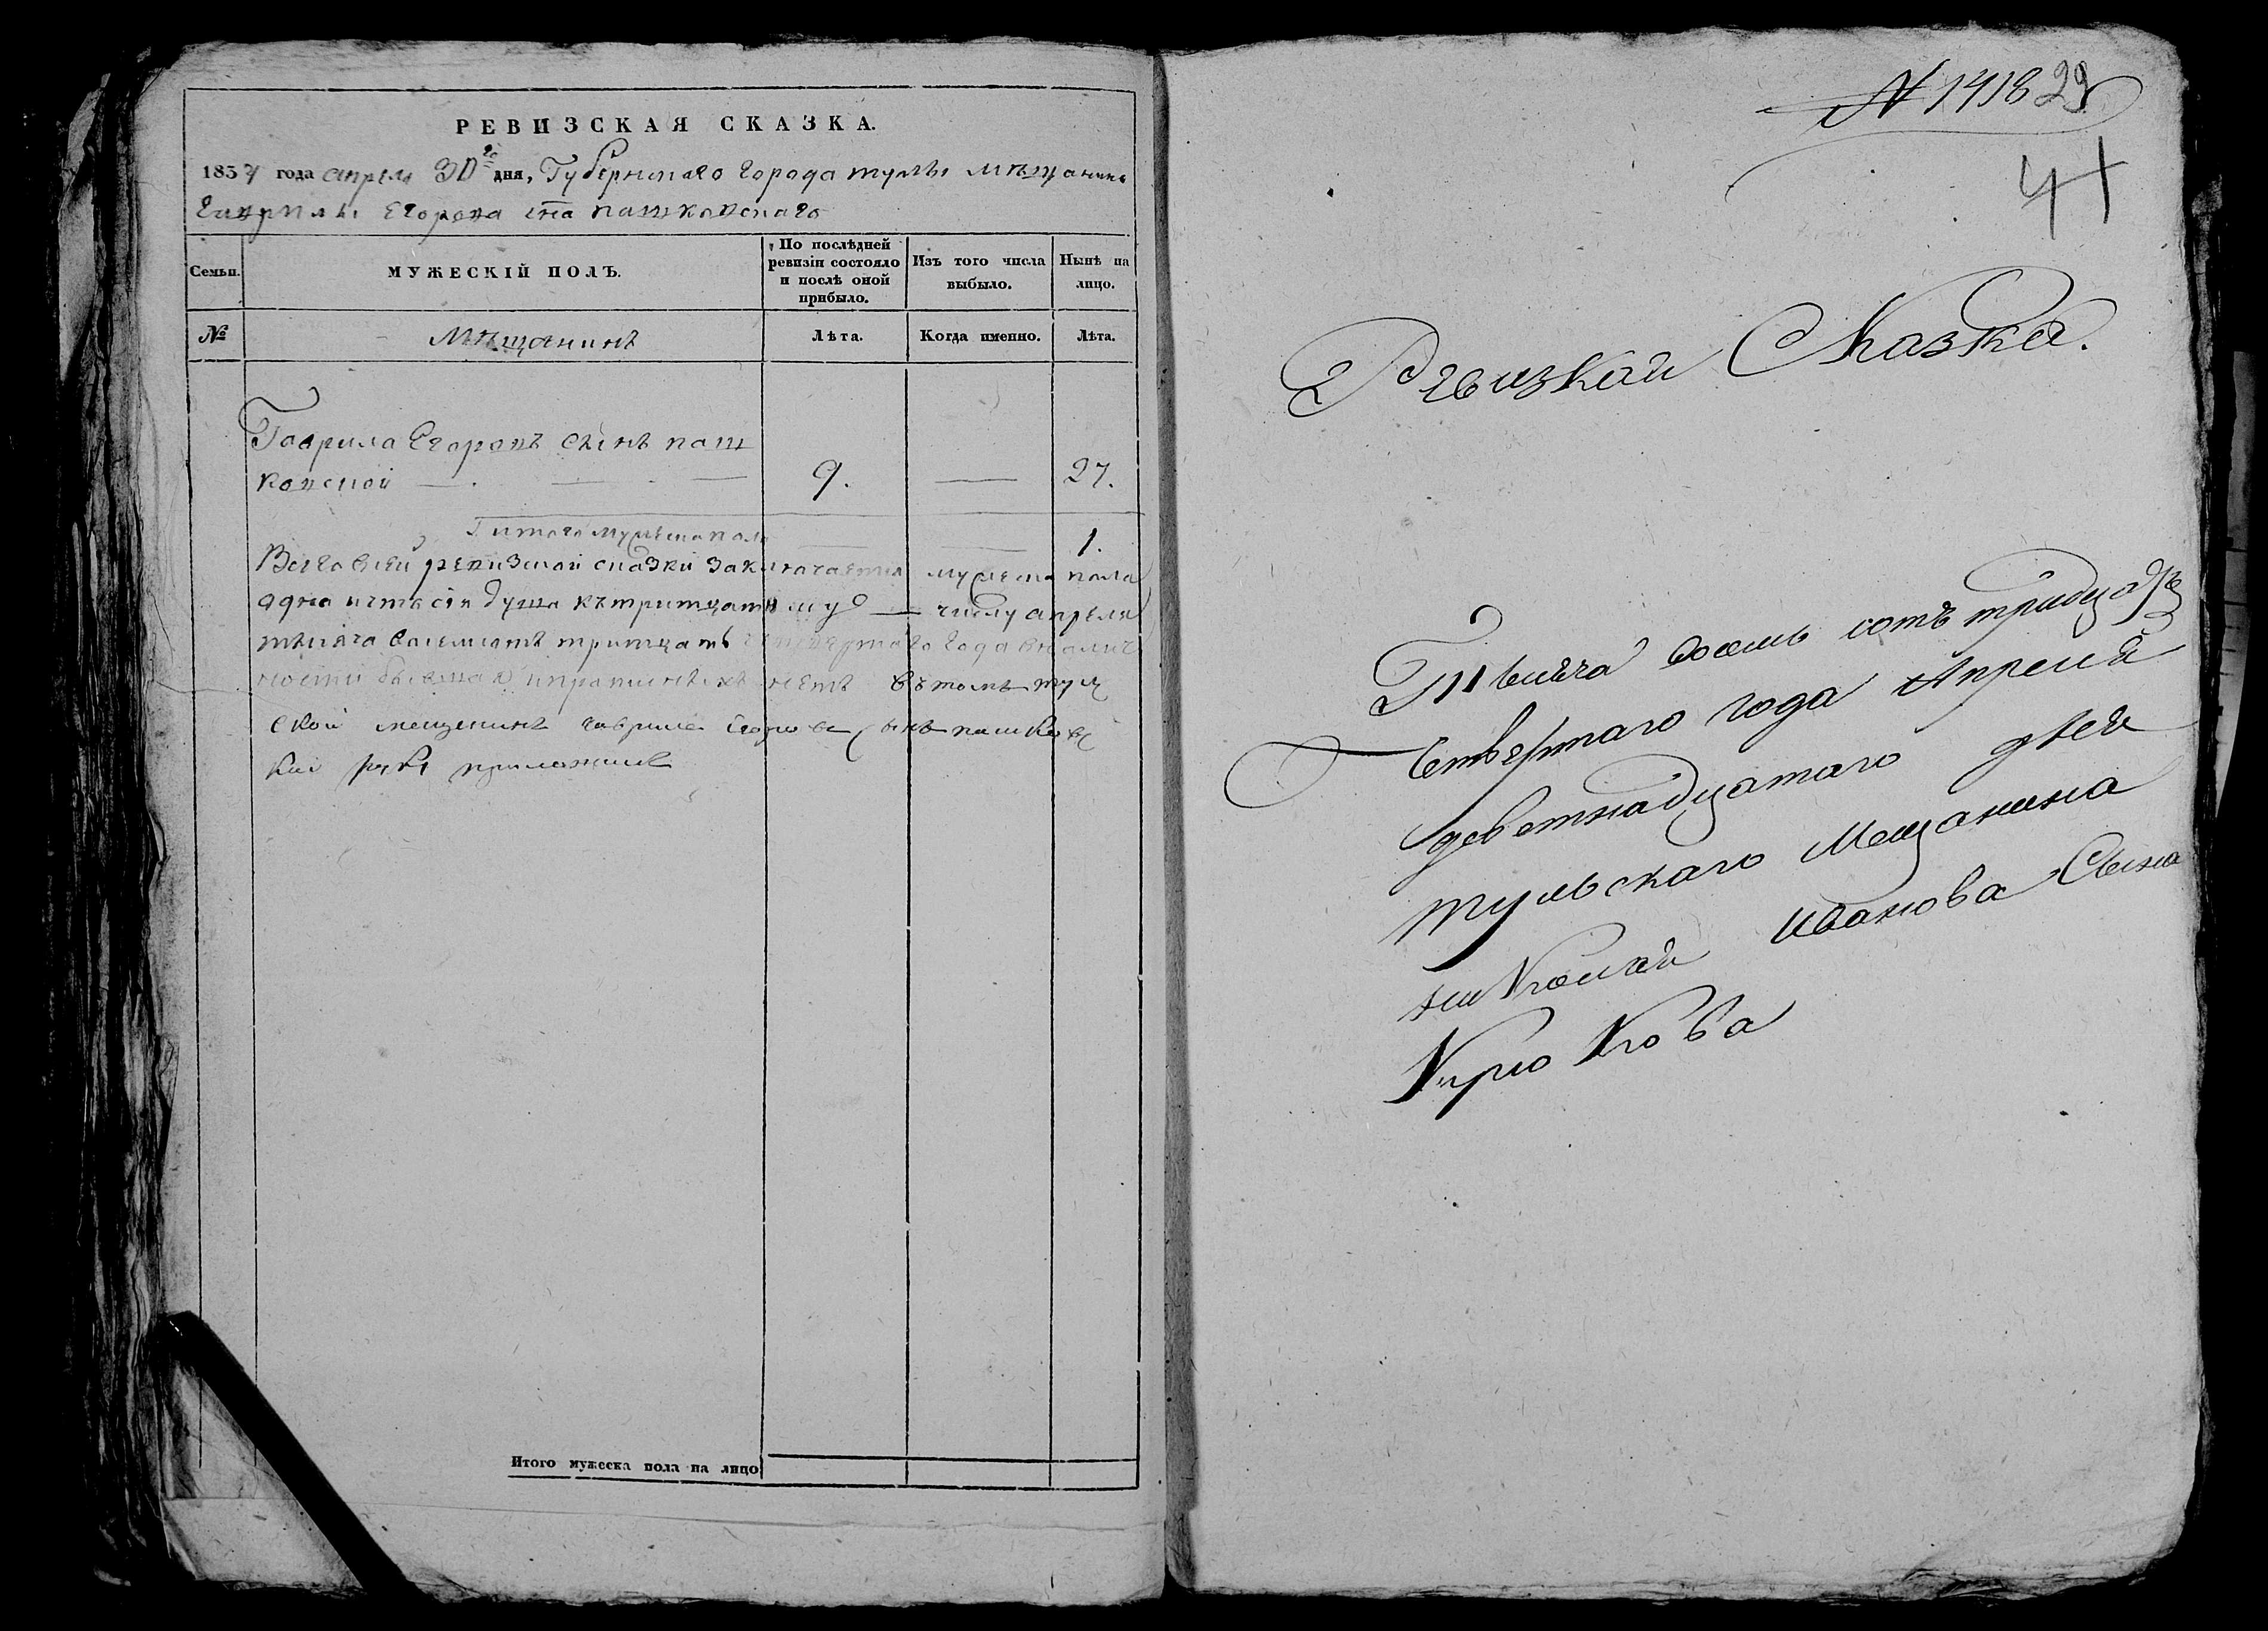 РЕВИЗСКАЯ СКАЗКА.
1834 года апреля 30го дня, Губернскаго города тулы мѣщанина
гаврилы егорова сна пашковскаго
Семьи.
МУЖЕСКІЙ ПОЛЪ.
По послѣдней ревизіи состояло и послѣ оной прибыло.
Изъ того числа выбыло.
Нынѣ на лицо.
№
Мѣщанинъ
Лѣта.
Когда именно.
Лѣта.
Гаврила Егоровъ сынъ паш
ковской 9. 27.
итого мужеска пола 1.
Всего всей ревизской сказки заключается мужеска пола
одна душа кътритцатому числу апреля
тысяча восемсотъ тритцать четвертаго года вналич
ности бывшая нетъ вътомъ тул
ской мещенинъ гаврила Егоровъ сынъ пашковс
кой руку приложилъ
Итого мужеска пола на лицо
N 1418 29
41
Ревизкая Сказка.
Тысяча восемь сотъ тридцать
Четвертаго года Апреля
деветнадцатаго дня
тульскаго Мещанина
николая Иванова Сына
Курюкова